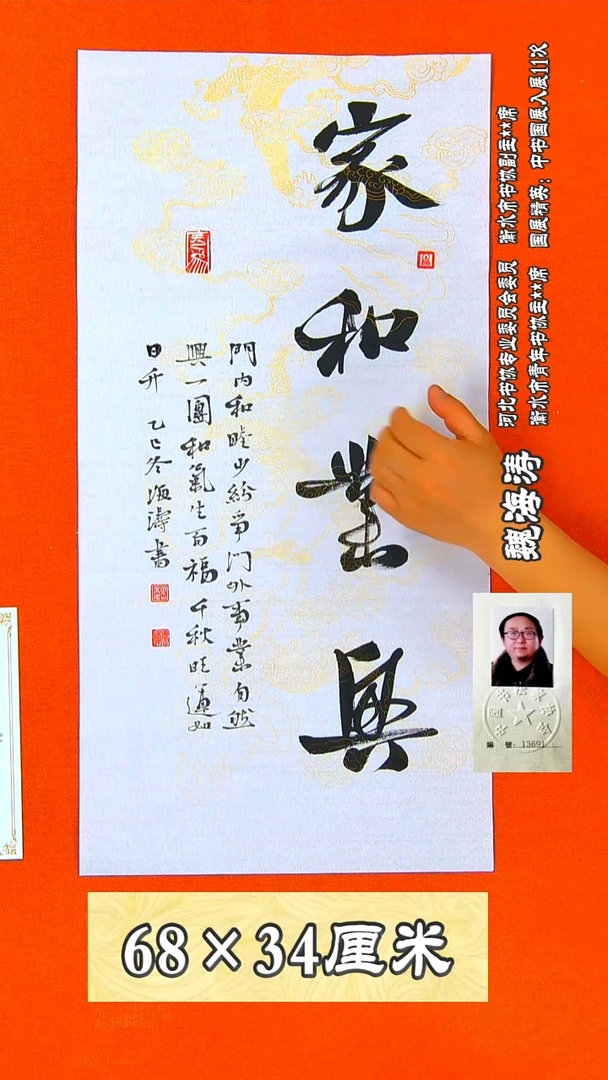 家和業興
門内和睦少紛爭门外事業自然
興一團和氣生百福千秋旺運如
日升 乙巳冬海濤書
河北书协专业委员会委员 衡水市书协副主**席
衡水市青年书协主**席 国展精英：中书国展入展11次
魏海涛
編 號：13691
68×34厘米